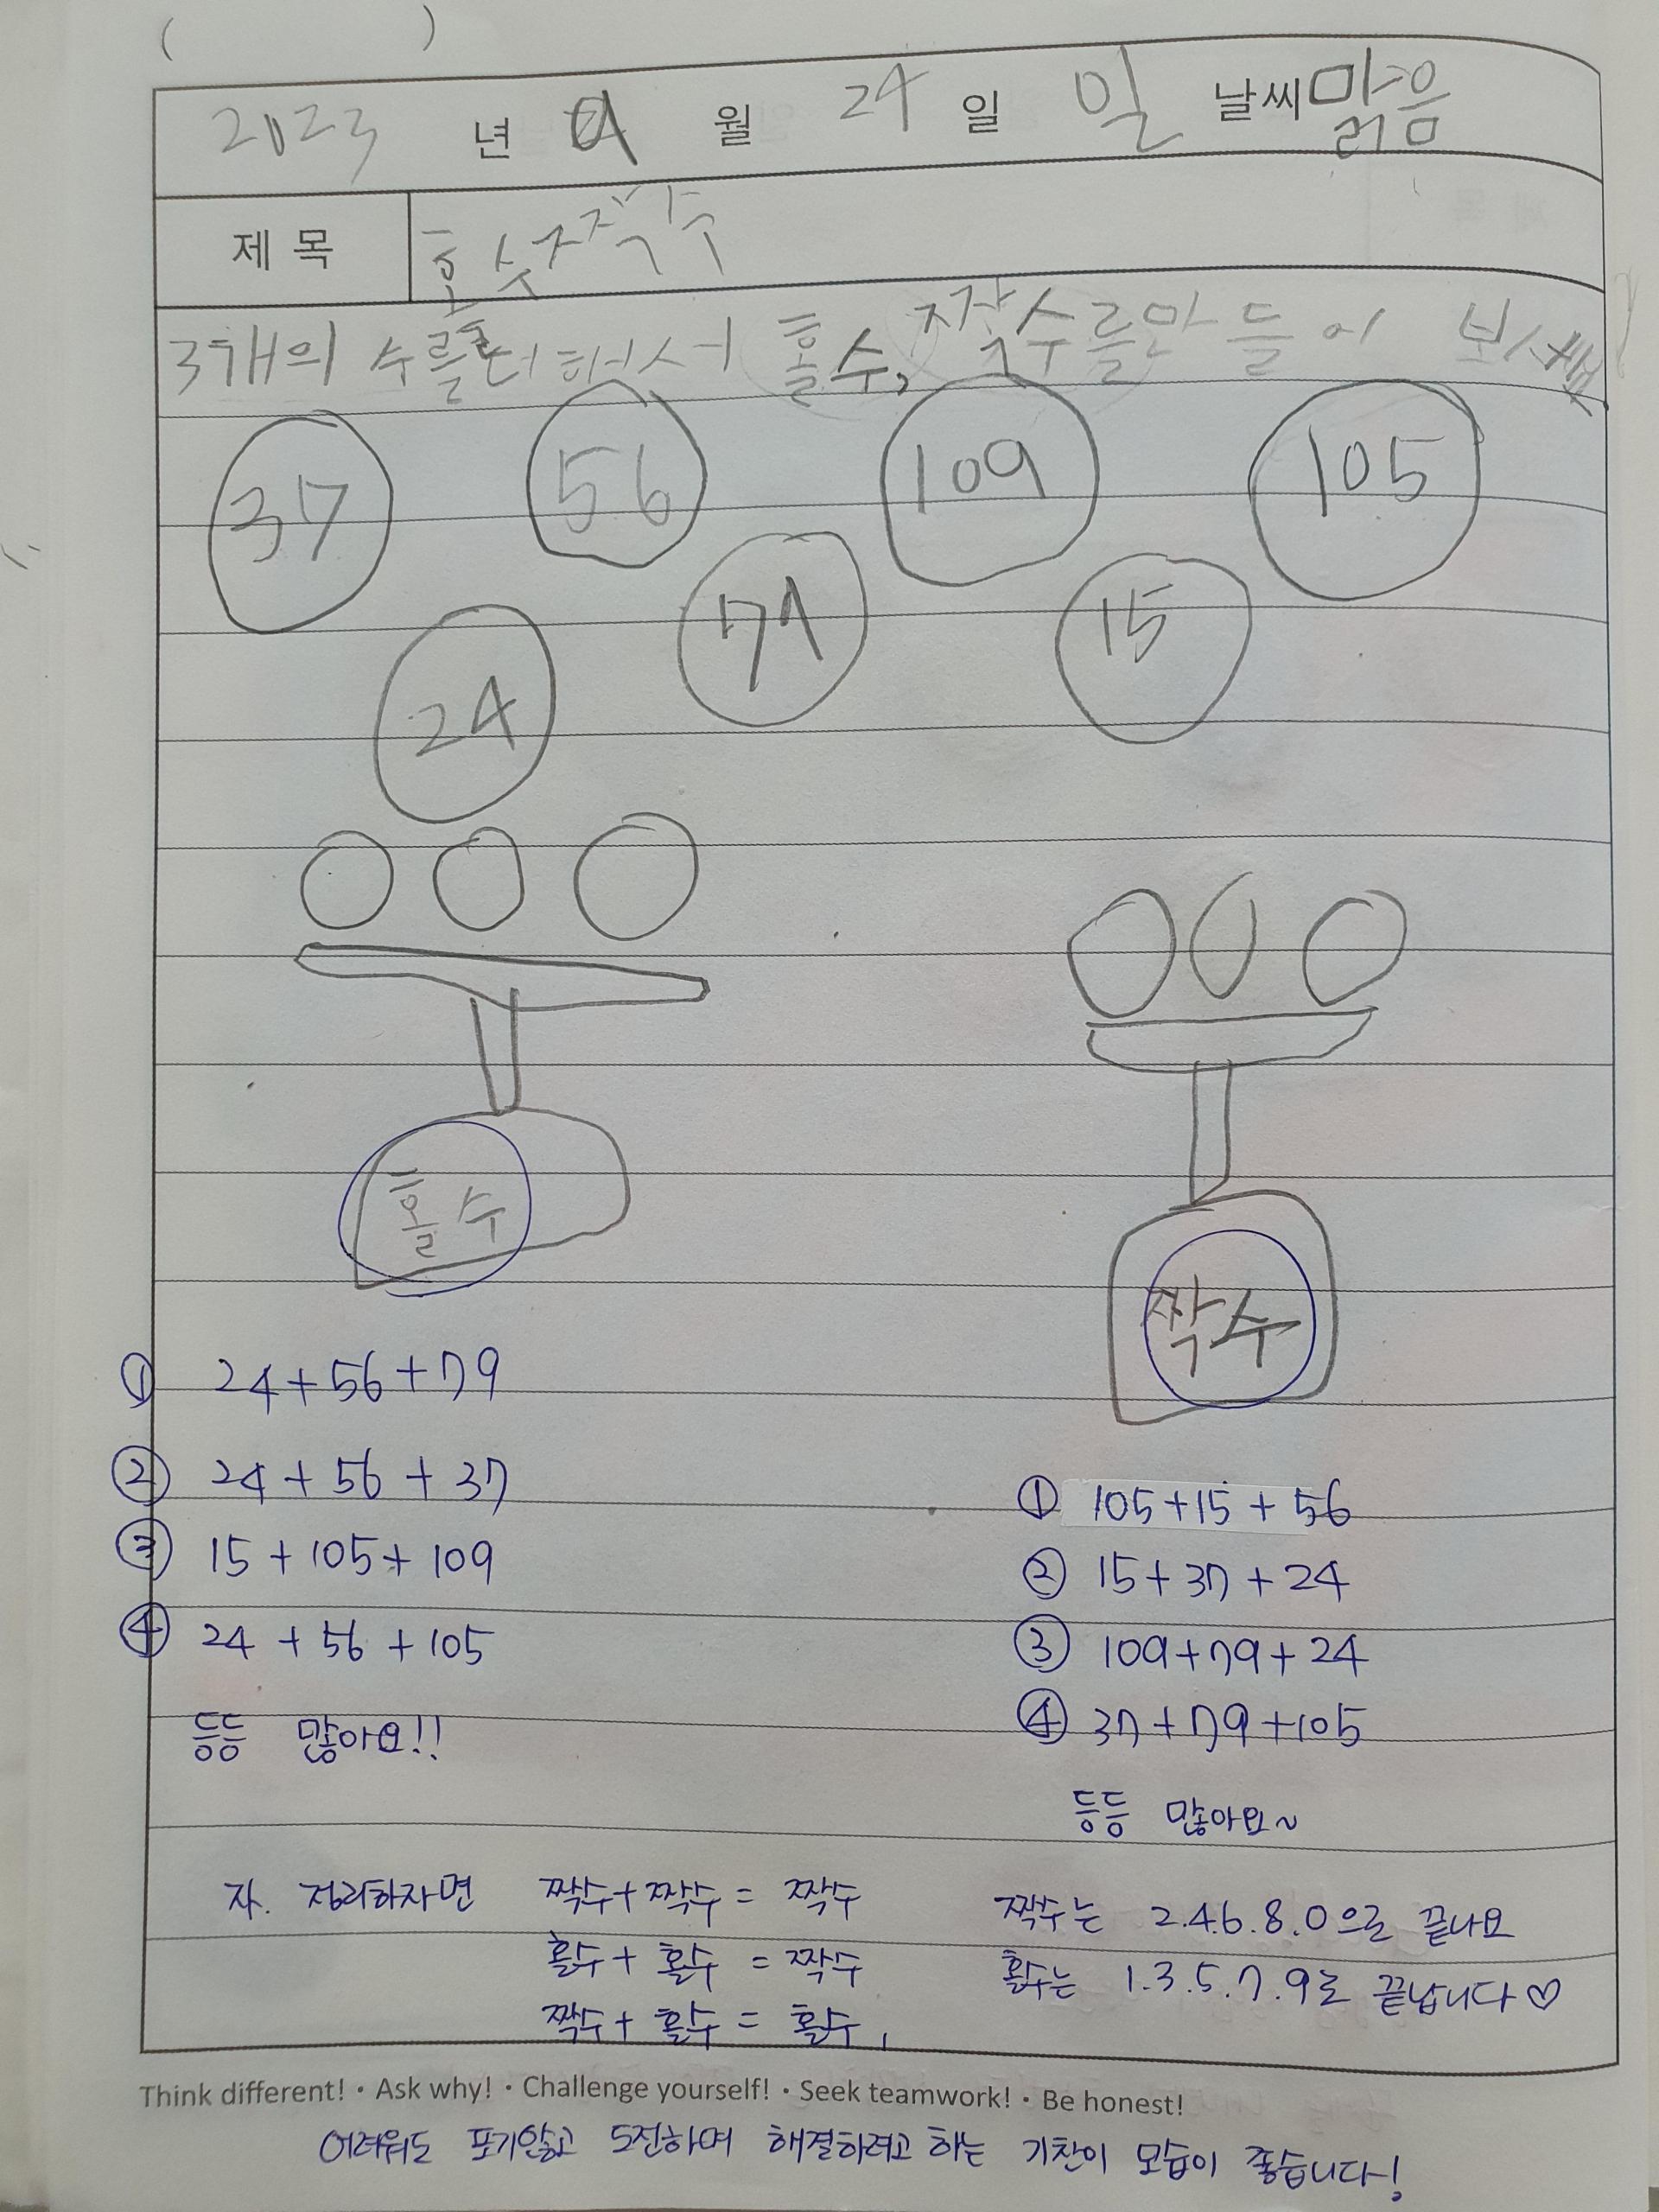 ( )
2023 년 9 월 24 일 일 날씨 맑음
제 목 홀수짝수
3개의 수를 더해서 홀수, 짝수를 만들어 보세
37 56 109 105
24 79 15
홀수
짝수
① 24+56+79
② 24+56+37
③ 15+105+109
④ 24+56+105
등등 많아요!!
① 105+15+56
② 15+37+24
③ 109+79+24
④ 37+79+105
등등 많아요~
자. 정리하자면 짝수+짝수= 짝수
홀수+ 홀수 = 짝수
짝수+ 홀수 = 홀수,
짝수는 2.4.6.8.0으로 끝나요
홀수는 1.3.5.7.9로 끝납니다♡
Think different! · Ask why! · Challenge yourself! · Seek teamwork! · Be honest!
어려워도 포기않고 도전하며 해결하려고 하는 기찬이 모습이 좋습니다~!